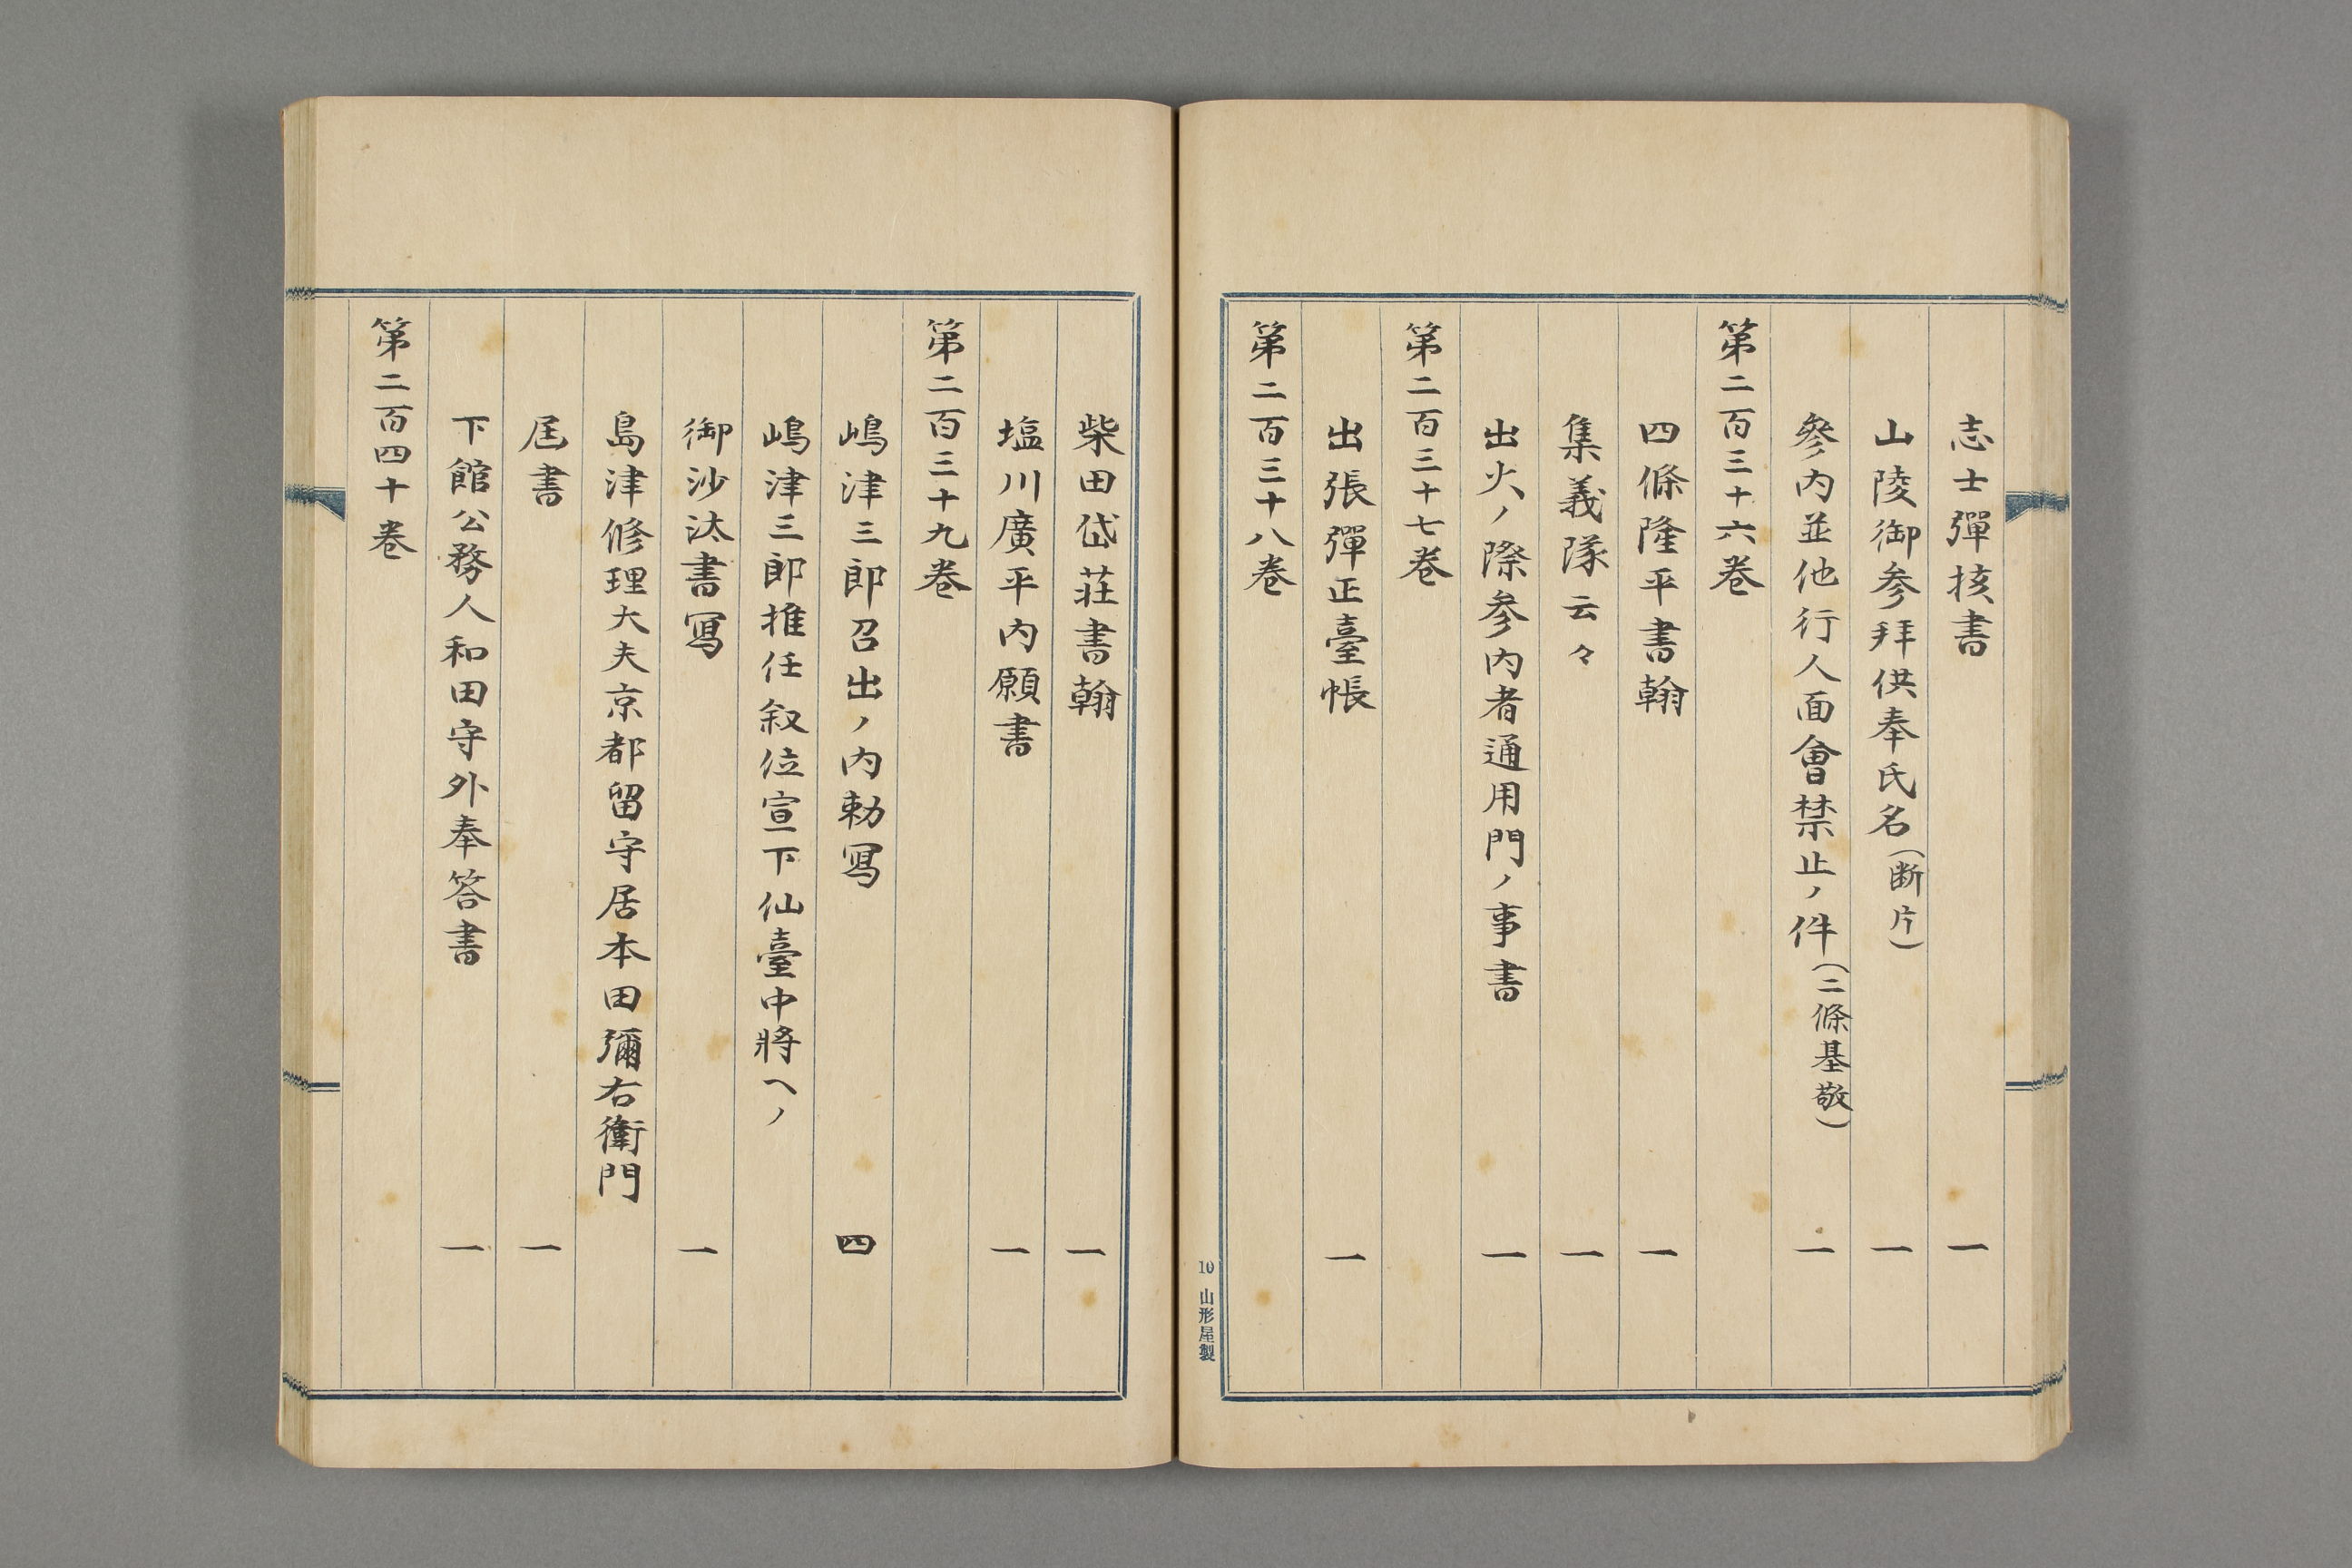 志士彈核書 一
山陵御参拜供奉氏名(断片) 一
參内並他行人面會禁止ノ件(二條基敬) 一
第二百三十六巻
四條隆平書翰 一
集義隊云々 一
出火ノ際参内者通用門ノ事書 一
第二百三十七巻
出張彈正臺帳 一
第二百三十八巻
10 山形屋製
柴田岱荘書翰 一
塩川廣平内願書 一
第二百三十九巻
嶋津三郎召出ノ内勅寫 四
嶋津三郎推任叙位宣下仙臺中將ヘノ
御沙汰書寫 一
島津修理大夫京都留守居本田彌右衛門
届書 一
下館公務人和田守外奉答書 一
第二百四十巻